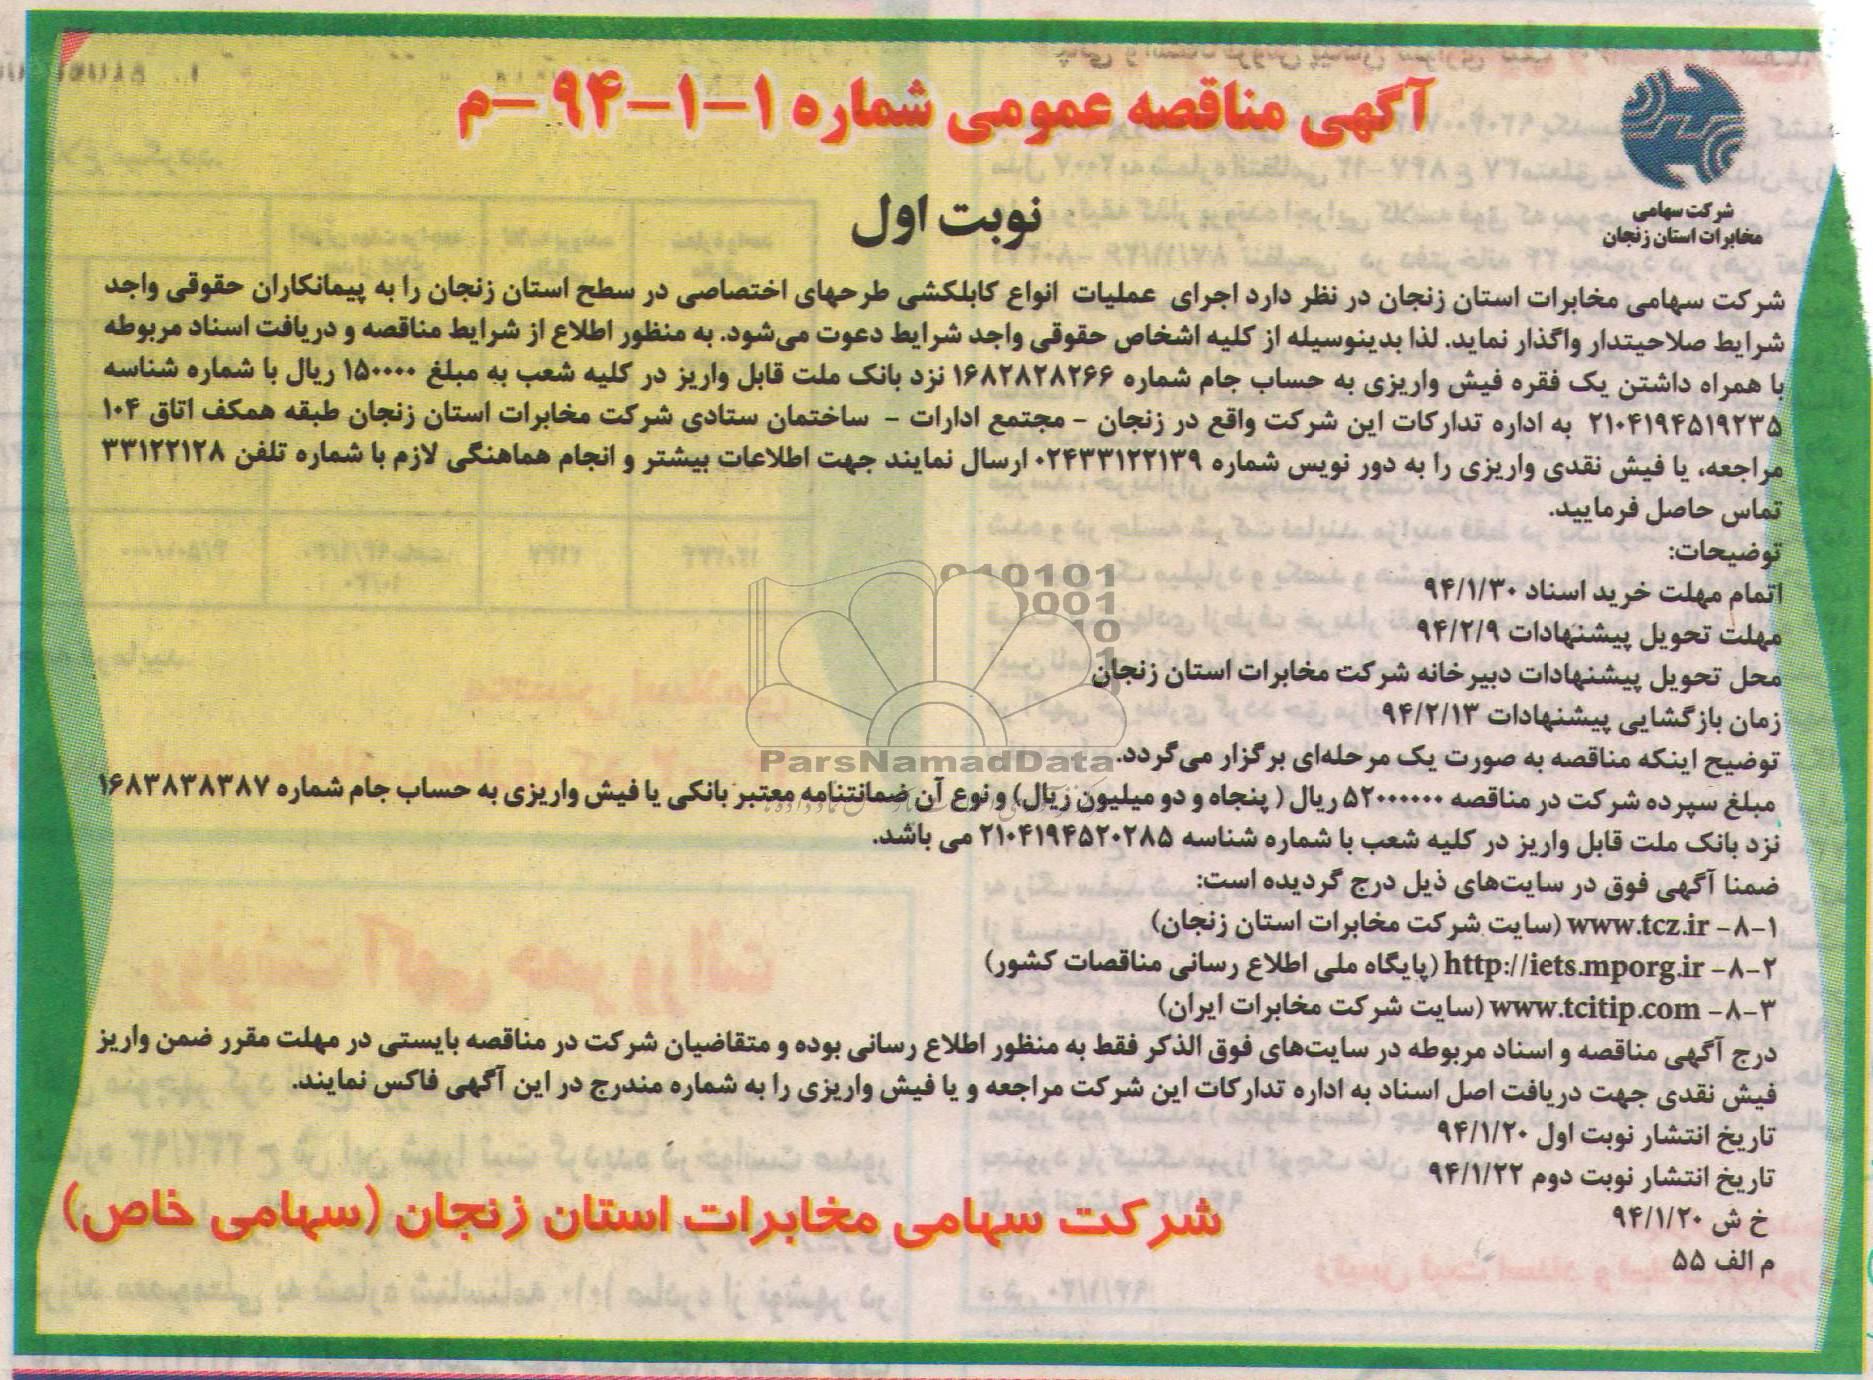 آگهی مناقصه عمومی شماره ۱-۱-۹۴-م
شرکت سهامی
مخابرات استان زنجان
نوبت اول
شرکت سهامی مخابرات استان زنجان در نظر دارد اجرای عملیات انواع کابلکشی طرحهای اختصاصی در سطح استان زنجان را به پیمانکاران حقوقی واجد
شرایط صلاحیتدار واگذار نماید. لذا بدینوسیله از کلیه اشخاص حقوقی واجد شرایط دعوت می‌شود. به منظور اطلاع از شرایط مناقصه و دریافت اسناد مربوطه
با همراه داشتن یک فقره فیش واریزی به حساب جام شماره ۱۶۸۲۸۲۸۲۶۶ نزد بانک ملت قابل واریز در کلیه شعب به مبلغ ۱۵۰۰۰۰ ریال با شماره شناسه
۲۱۰۴۱۹۴۵۱۹۲۳۵ به اداره تدارکات این شرکت واقع در زنجان - مجتمع ادارات - ساختمان ستادی شرکت مخابرات استان زنجان طبقه همکف اتاق ۱۰۴
مراجعه، یا فیش نقدی واریزی را به دور نویس شماره ۰۲۴۳۳۱۲۲۱۳۹ ارسال نمایند جهت اطلاعات بیشتر و انجام هماهنگی لازم با شماره تلفن ۳۳۱۲۲۱۲۸
تماس حاصل فرمایید.
توضیحات:
اتمام مهلت خرید اسناد ۹۴/۱/۳۰
مهلت تحویل پیشنهادات ۹۴/۲/۹
محل تحویل پیشنهادات دبیرخانه شرکت مخابرات استان زنجان
زمان بازگشایی پیشنهادات ۹۴/۲/۱۳
توضیح اینکه مناقصه به صورت یک مرحله‌ای برگزار می‌گردد.
مبلغ سپرده شرکت در مناقصه ۵۲۰۰۰۰۰۰ ریال ( پنجاه و دو میلیون ریال) و نوع آن ضمانتنامه معتبر بانکی یا فیش واریزی به حساب جام شماره ۱۶۸۳۸۳۸۳۸۷
نزد بانک ملت قابل واریز در کلیه شعب با شماره شناسه ۲۱۰۴۱۹۴۵۲۰۲۸۵ می باشد.
ضمنا آگهی فوق در سایت‌های ذیل درج گردیده است:
۸-۱- www.tcz.ir (سایت شرکت مخابرات استان زنجان)
۸-۲- http://iets.mporg.ir (پایگاه ملی اطلاع رسانی مناقصات کشور)
۸-۳- www.tcitip.com (سایت شرکت مخابرات ایران)
درج آگهی مناقصه و اسناد مربوطه در سایت‌های فوق الذکر فقط به منظور اطلاع رسانی بوده و متقاضیان شرکت در مناقصه بایستی در مهلت مقرر ضمن واریز
فیش نقدی جهت دریافت اصل اسناد به اداره تدارکات این شرکت مراجعه و یا فیش واریزی را به شماره مندرج در این آگهی فاکس نمایند.
تاریخ انتشار نوبت اول ۹۴/۱/۲۰
تاریخ انتشار نوبت دوم ۹۴/۱/۲۲
خ ش ۹۴/۱/۲۰
م الف ۵۵
شرکت سهامی مخابرات استان زنجان (سهامی خاص)
ParsNamadData